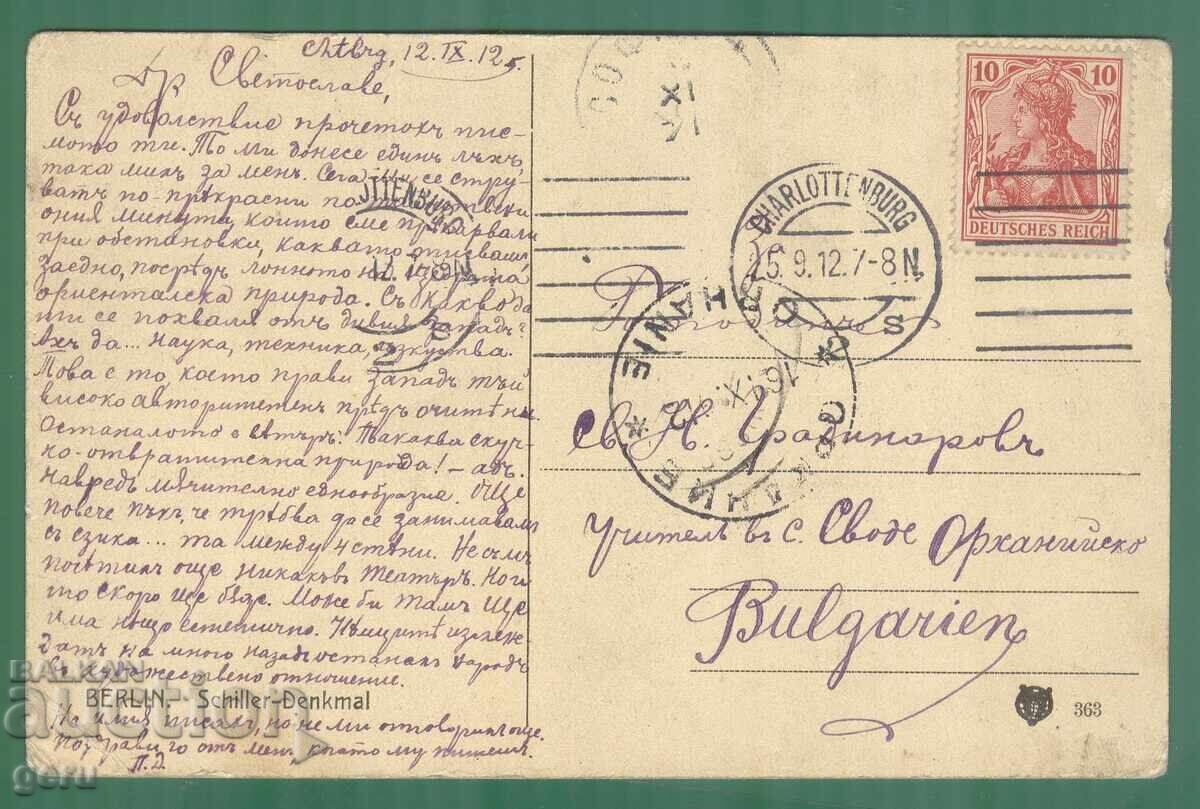 12.IX.12
др Светославе,
Съ удоволствие прочетохъ пис-
мото ти. То ми донесе единъ лъхъ,
така милъ за менъ. Сега ми се стру-
ватъ по-прѣкрасни
ония минути, които сме прѣкарвали
при обстановки, каквато описвашъ,
заедно, посрѣдъ лонното на
ориенталска природа. Съ какво да
ти се похваля отъ дивия западъ?
Ахъ да... Наука, техника, изкуства.
Това е то, което прави западъ тъй
високо авторитетенъ прѣдъ очитѣ ни
останалото е вѣтъръ. Пакъ каква скуч-
но-отвратителна природа! –
наредъ мѫчително еднообразна. Още
повече пъкъ, че трѣбва да се занимавамъ
съ езика... та между 4 стѣни. Не съмъ
посѣтилъ още никакъвъ театъръ. Но
то скоро ще бѫде. Може би тамъ ще
има нѣщо естетично. Нѣмцитѣ изглеж-
датъ на много назадъ останалъ народъ
въ художествено отношение.
BERLIN. Schiller-Denkmal
писахъ, но не ми отговорилъ още.
Поздрави го отъ менъ, когато му пишешъ.
П.Д.
10 10
DEUTSCHES REICH
CHARLOTTENBURG
25.9.12.7-8N.
S
TTENBURG
2
СВ. Н. Градинаровъ
Учитель въ с. Своде Орханийско
Bulgarien
363
BALKAN
auction
geru